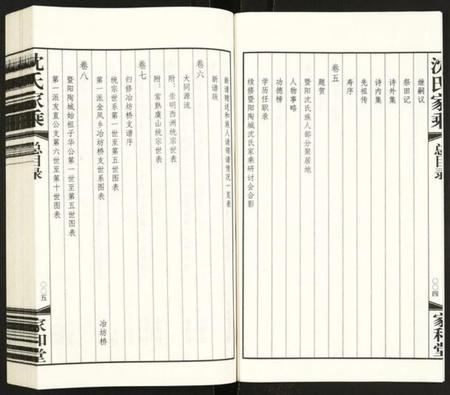 沈氏家乘
总目录
〇〇四
家和堂
继嗣议
祭田记
诗外集
诗内集
先祖传
寿序
卷五
题贺
暨阳沈氏族人部分聚居地
人物事略
功德榜
学历任职录
续修暨阳陶城沈氏家乘研讨会合影
新谱赠送和族人请领谱情况一览表
新谱跋
卷六
大同源流
附：崇明西洲统宗世表
附：常熟虞山统宗世表
卷七
归修冶坊桥支谱序
统宗世系第一世至第五世图表
第一派金凤乡冶坊桥支世系图表
冶坊桥
卷八
暨阳陶城始祖子华公第一世至第五世图表
第一派发直公支第六世至第十世图表
沈氏家乘
总目录
〇〇五
家和堂